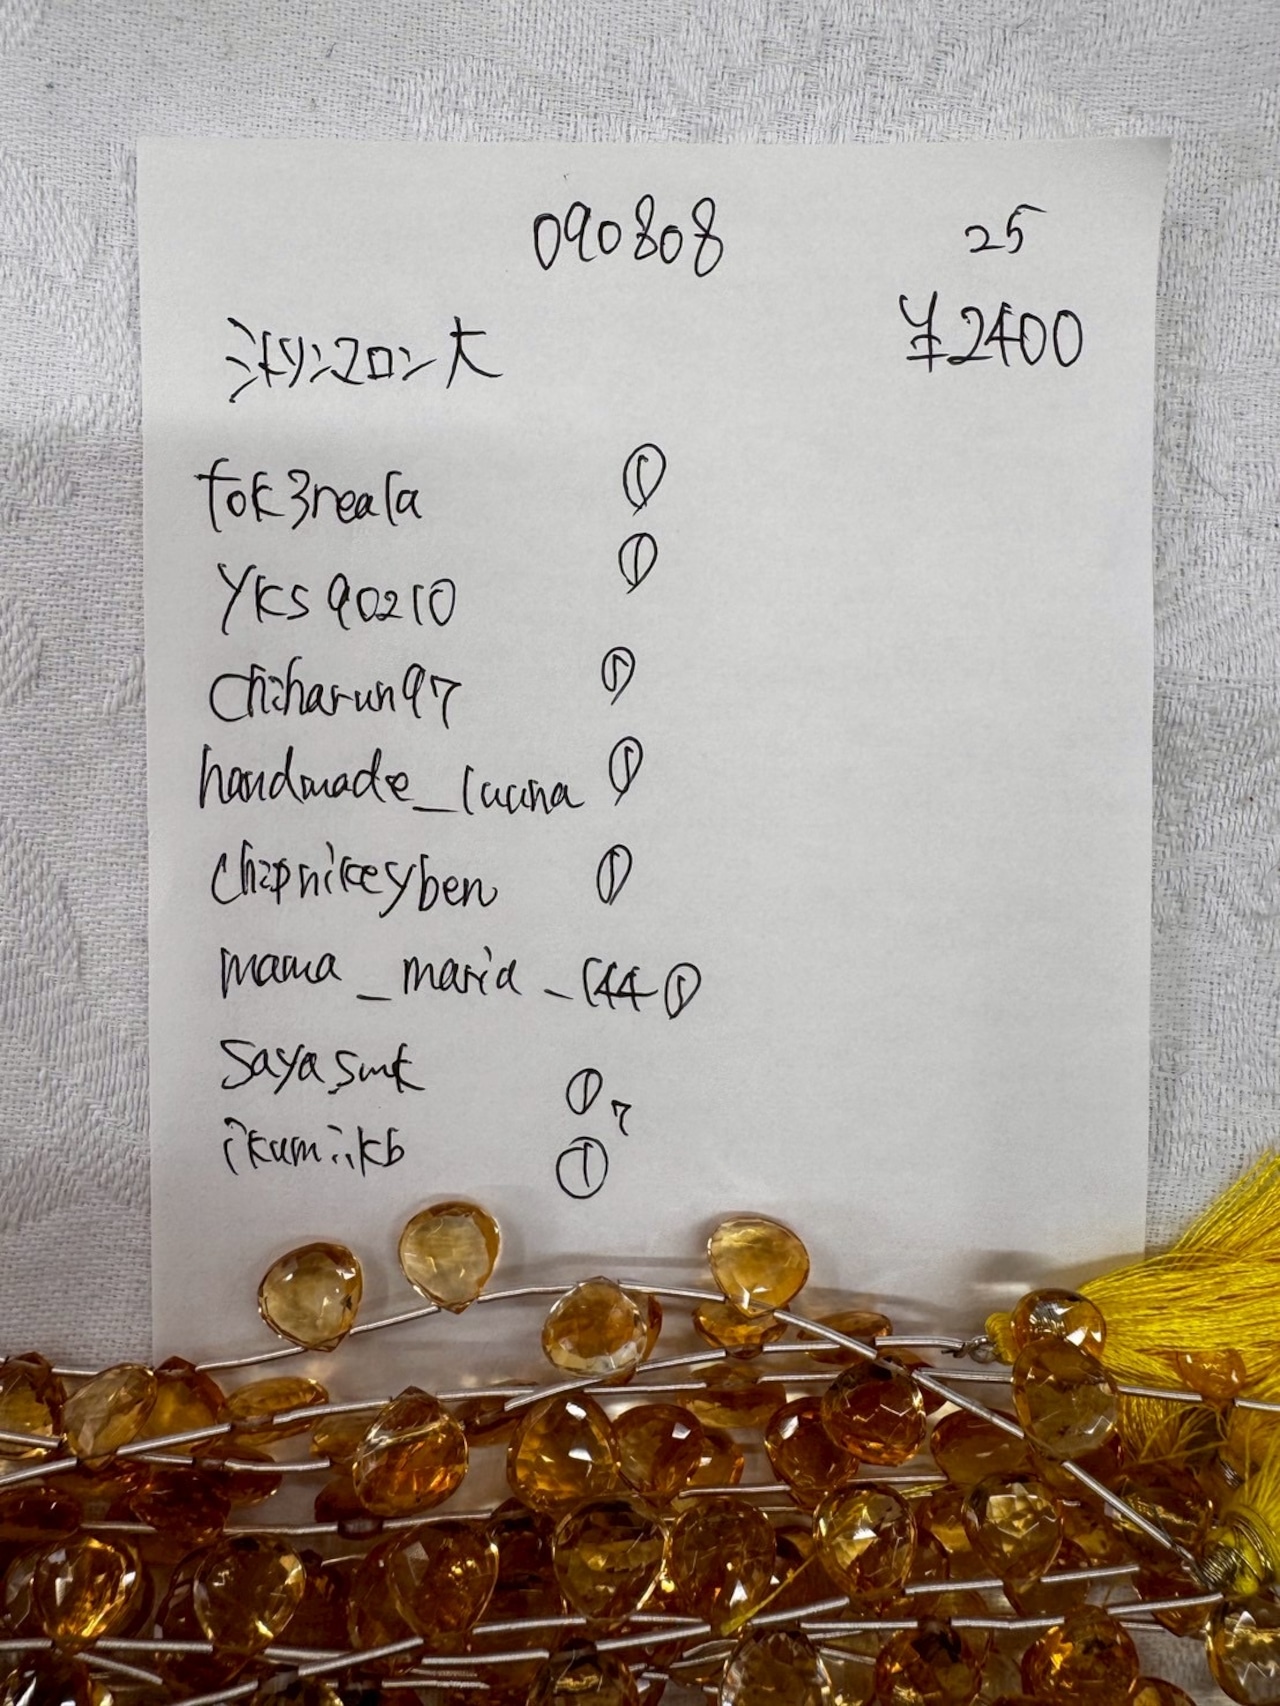 090808 25
シトリンマロン大 ¥2400
tok3reala ①
yks90210 ①
chiharun97 ①
handmade_luuna ①
chipnikeyben ①
mama_maria_144 ①
sayasmk ① 7
ikumiikb ①